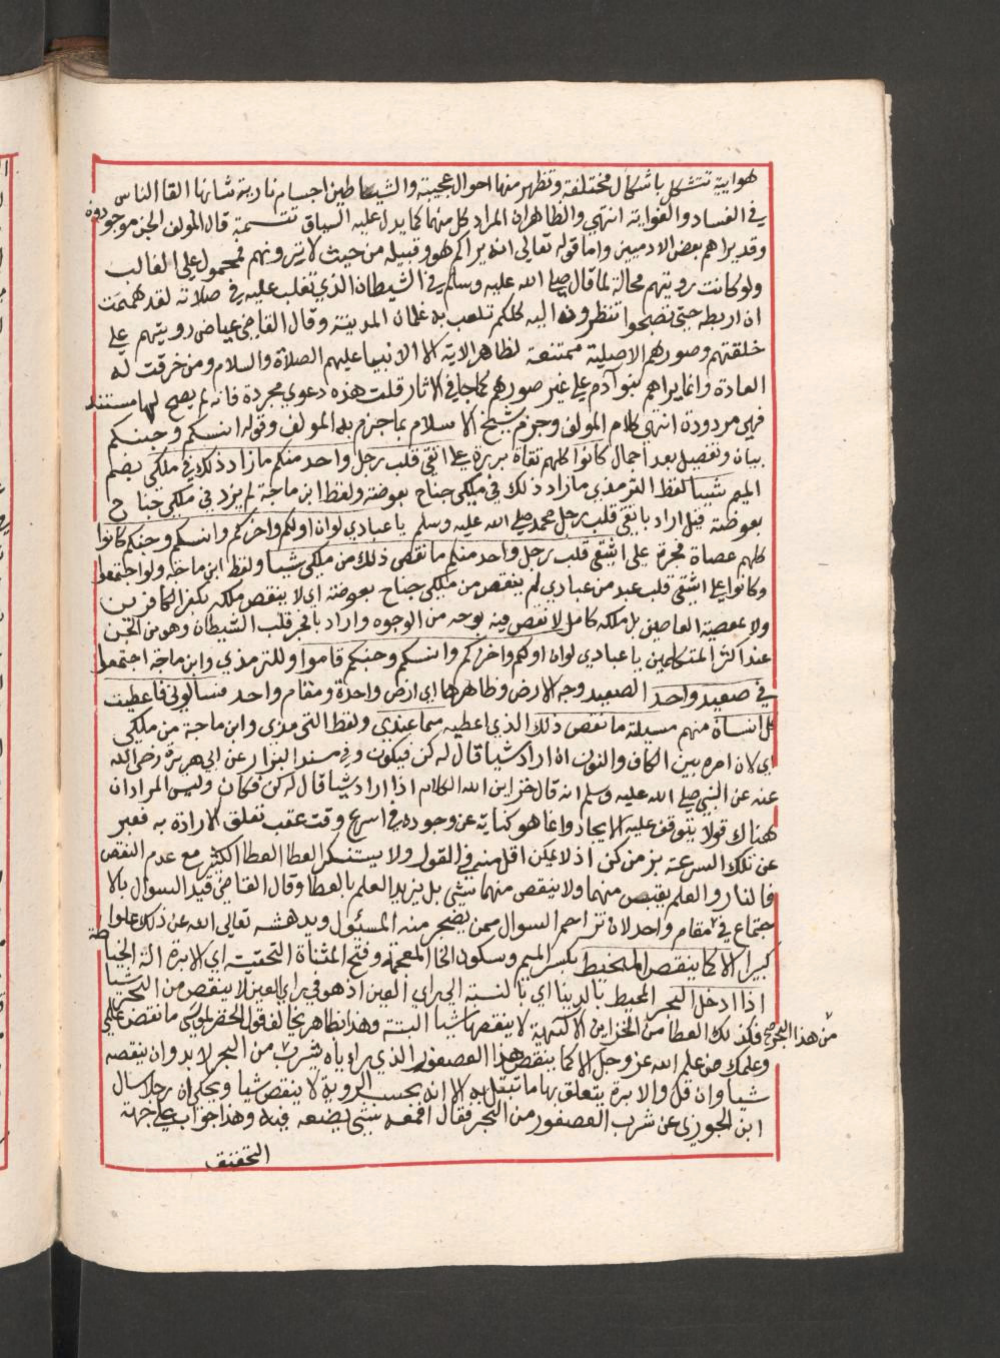 هوايية تتشكل باشكال مختلفة وتظهر منها احوال عجيبة والشياطين اجسام نارية شانها القا الناس
في الفساد والغواية انتهي والظاهر ان المراد كل منهما كما يدل عليه السياق تتسمة قال المولف الجن موجودة
وقد يراهم بعض الادميين واما قوله تعالي انه يراكم هو وقبيله من حيث لا ترونهم فمحمول علي الغالب
ولو كانت رويتهم محالة لما قال صلي الله عليه وسلم في الشيطان الذي تغلب عليه في صلاته لقد هممت
ان اربطه حتي تصبحوا تنظرونه اليه كلكم تلعب به غلمان المدينة وقال القاضي عياض رويتهم علي
خلقتهم وصورهم الاصلية ممتنعة لظاهر الاية الا الانبيا عليهم الصلاة والسلام ومن خرقت له
العادة وانما يراهم بنو آدم علي غير صورهم كما جا في الاثار قلت هذه دعوي مجردة فانه لم يصح لها مستند
فهي مردودة انتهي كلام المولف وجزم شيخ الاسلام بما جزم به المولف وقوله انسكم وجنكم
بيان وتفصيل بعد اجمال كانوا كلهم تقاة بررة علي اتقي قلب رجل واحد منكم ما زاد ذلك في ملكي بضم
الميم شييا لفظ الترمذي ما زاد ذلك في ملكي جناح بعوضة ولفظ ابن ماجة لم يزد في ملكي جناح
بعوضة قيل اراد باتقي قلب رجل محمد صلي الله عليه وسلم يا عبادي لو ان اولكم واخركم وانسكم وجنكم كانوا
كلهم عصاة فجرة علي اشقي قلب رجل واحد منكم ما نقص ذلك من ملكي شييا ولفظ ابن ماجة ولو اجتمعوا
وكانوا علي اشقي قلب عبد من عبادي لم ينقص من ملكي جناح بعوضة اي لا ينقص ملكه بكفر الكافرين
ولا بمعصية العاصين بل ملكه كامل لا نقص فيه بوجه من الوجوه واراد بافجر قلب الشيطان وهو من الجن
عند اكثر المتكلمين يا عبادي لو ان اولكم واخركم وانسكم وجنكم قاموا وللترمذي وابن ماجة اجتمعوا
في صعيد واحد الصعيد وجه الارض وظاهرها اي ارض واحدة ومقام واحد فسالوني فاعطيت
كل انسان منهم مسيلته ما نقص ذلك الذي اعطيه مما عندي ولفظ الترمذي وابن ماجة من ملكي
اي لان امره بين الكاف والنون اذا اراد شيا قال له كن فيكون وفي مسند البزار عن ابي هريرة رضي الله
عنه عن النبي صلي الله عليه وسلم انه قال خزاين الله الكلام اذا اراد شيا قال له كن فكان وليس المراد ان
هناك قولا يتوقف عليه الايجاد وانما هو كناية عن وجوده في اسرع وقت عقب تعلق الارادة به فعبر
عن تلك السرعة بزمن كن اذ لا يمكن اقل منه في القول ولا يستنكر العطا العطا الكثير مع عدم النقص
فالنار والعلم يقتبص منهما ولا ينقص منهما شي بل يزيد العلم بالعطا وقال القاضي قيد السوال بالا
جتماع في مقام واحد لان تزاحم السوال ممن يضجر منه المسيول ويدهشه تعالي الله عن ذلك علوا
كبيرا الا كما ينقص المخيط بكسر الميم وسكون الخا المعجمة وفتح المثناة التحتية اي الابرة الة الخياطة
اذا ادخل البحر المحيط بالدنيا اي بالنسبة الي راي العين اذ هو في راي العين لا ينقص من البحر شيا
فكذلك العطا من الخزاين الالهية لا ينقصها شيا البتة وهذا ظاهر يخالف قول الخضر لموسي ما نقص علمي
من هذا البحر صح
وعلمك من علم الله عز وجل الا كما ينقص هذا العصفور الذي راوياه يشرب من البحر لا بد وان ينقصه
شييا وان قل والابرة يتعلق بها ما تبتل به الا انه بحسب الروية لا ينقص شيا ويحكي ان رجلا سال
ابن الجوزي عن شرب العصفور من البحر فقال افمعه شي يضعه فيه وهذا جواب علي جهة
التحقيق